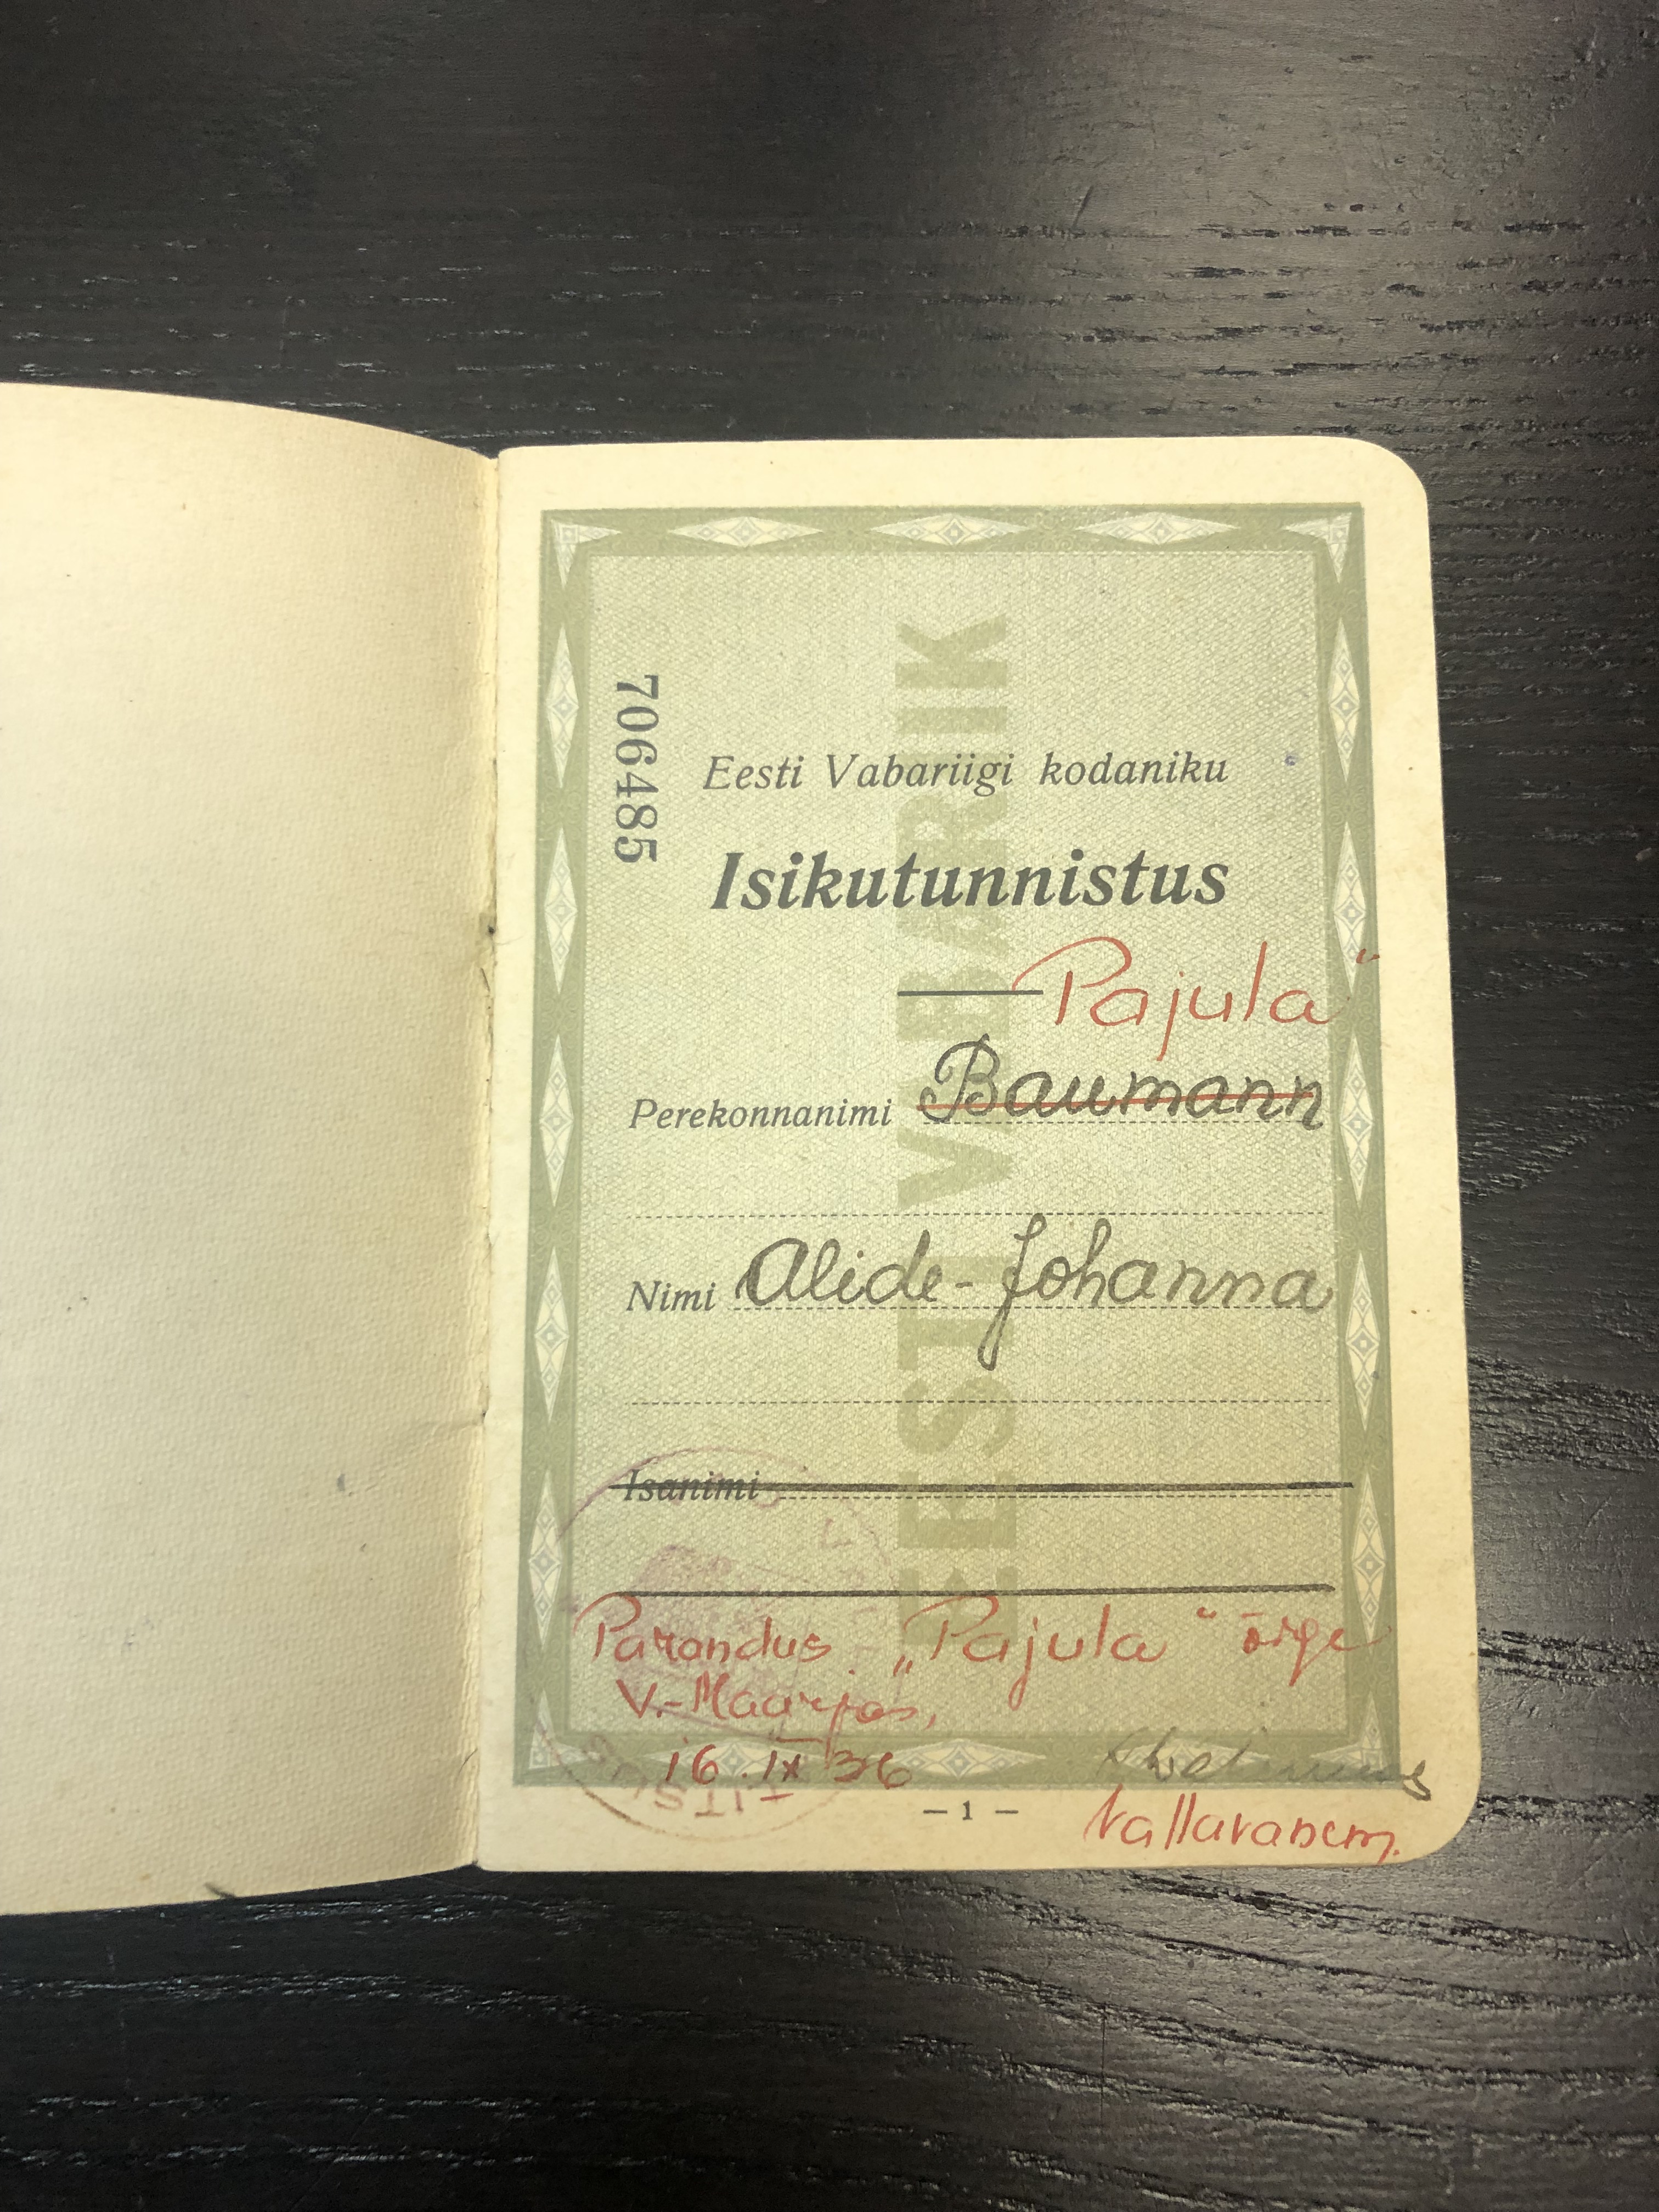 706485
EESTI VABARIIK
Eesti Vabariigi kodaniku
Isikutunnistus
Pajula"
Perekonnanimi Baumann
Nimi Alide-Johanna
Isanimi
Parandus „Pajula" õige
V.-Maarjas,
16.IX 36
— 1 —
Vallavanem.